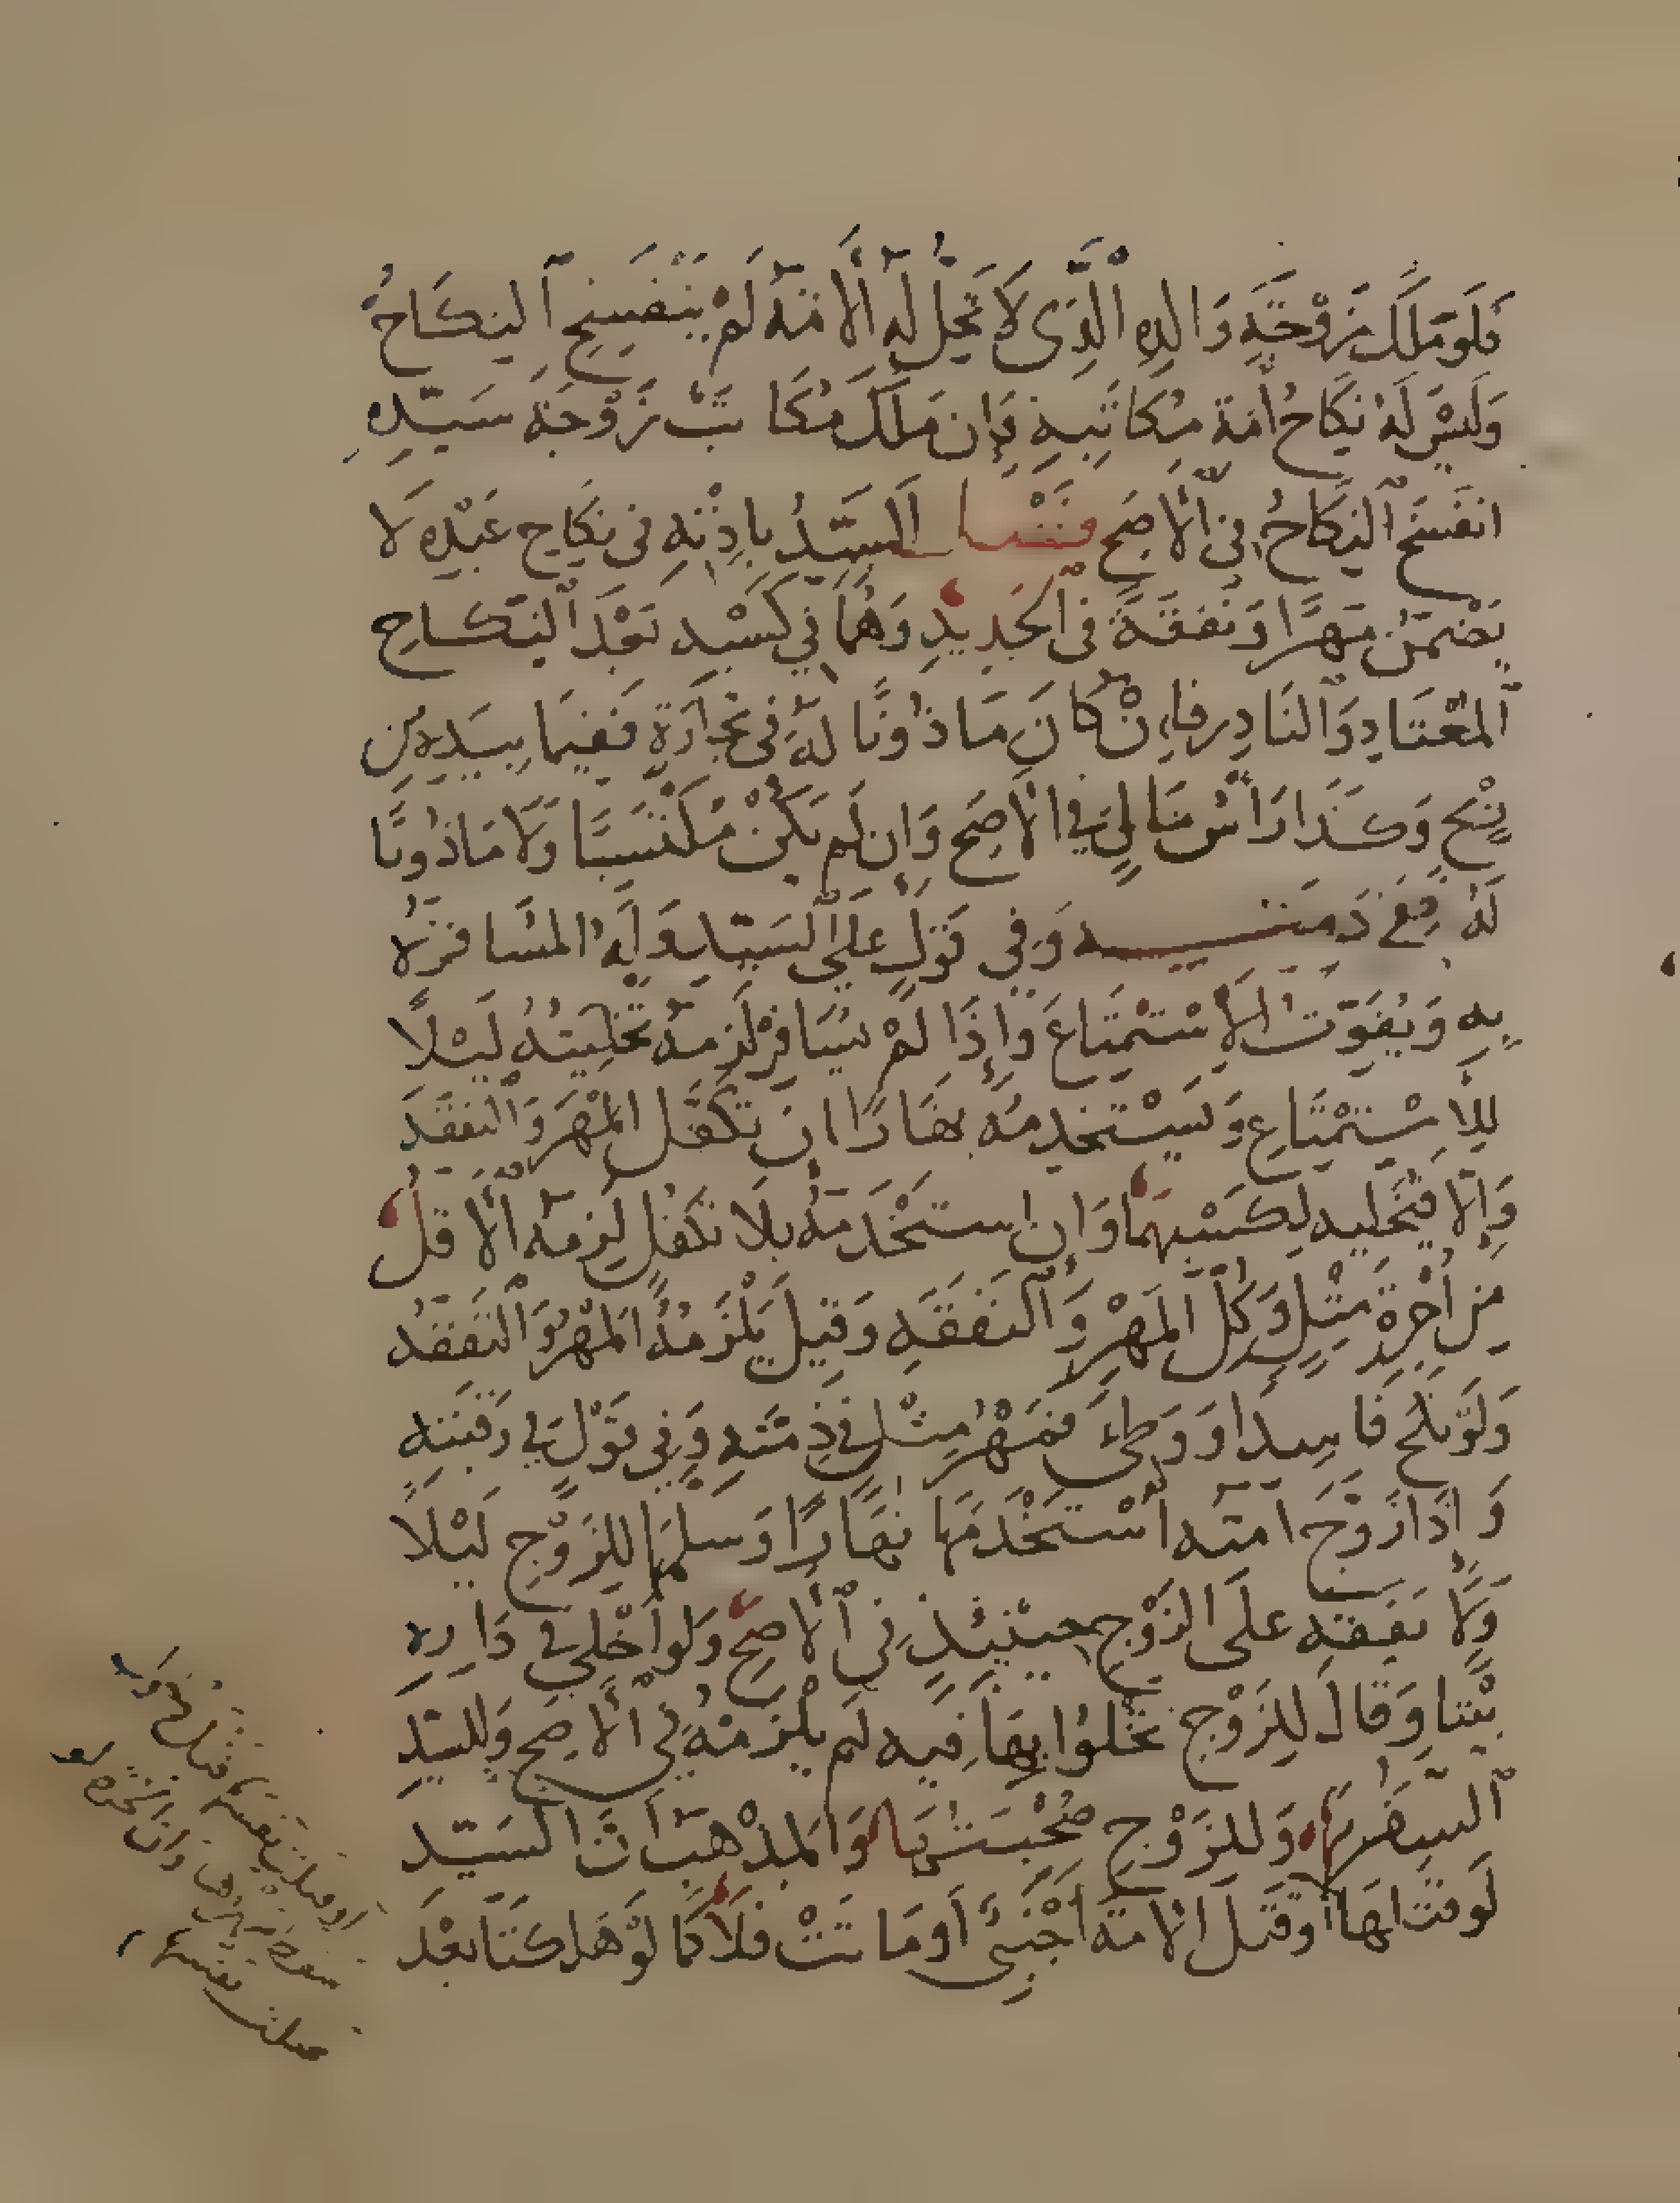 فَلَو مَلَكَ زَوْجَةَ وَالِدِهِ الَّذِى لَا تَحِلُّ لَهُ الْأَمَةُ لَمْ يَنْفَسِخِ النِكَاحُ
وَلَيْسَ لَهُ نِكَاحُ أَمَةِ مُكَاتَبِهِ فَإِن مَلَكَ مُكَاتَبٌ زَوْجَةَ سَيّدِهِ
انفَسَخَ النِكَاحُ فِى الْأَصَحِ فَصْـــل السَيّدُ بِاِذْنِهِ فى نِكَاحِ عَبْدِهِ لَا
يَضْمَنُ مَهرًا وَنَفَقَةً فى الجَدِيدِ وَهُمَا فِي كَسْبِهِ بَعْدَ النِكَاحِ
المُعْتَادِ وَالنَادِرِ فَإِنْ كَانَ مَاذُونًا لَهُ فى تِجَارَةٍ فَفِيمَا بِيَدِهِ مِن
رِبْحٍ وَكَذَا رَأْسُ مَالٍ فِي الْأَصَحِ وَإِن لَم يَكُنْ مُكْتَسِبًا وَلَا مَاذُونًا
لَهُ فَفِى ذِمَتِـــهِ وَفِى قَوْلٍ عَلَى السَيّدِ وَلَهُ المُسَافَرَةُ
بِهِ وَيُفَوّتُ الِاسْتِمْتَاعَ وَإِذَا لَمْ يُسَافِرْ لَزِمَهُ تَخْلِيَتُهُ لَيْلًا
لِلِاسْتِمْتَاعِ وَيَسْتَخدِمُهُ نهَارًا ان تَكَفَّلَ المَهْرَ وَالنَفقَةَ
وَإِلَّا فَيُخَلّيهِ لِكَسْبِهِمَا وَإِن اسْتَخْدَمَهُ بِلَا تكَفُّلٍ لَزِمَهُ الْأَقَلُّ
مِن أُجْرَةِ مِثْلٍ وَكُلّ المَهْرِ وَالنَفَقَةِ وَقِيلَ يَلْزَمُهُ المَهْرُ وَالنَفَقَةُ
وَلَوْ نَكَحَ فَاسِدًا وَوَطِئَ فَمَهْرُ مِثْلٍ فِي ذِمَّتِهِ وَفِي قَوْلٍ فِي رَقَبَتِهِ
وَإِذَا زَوَّجَ أمَتَهُ اسْتَخْدَمَهَا نَهَارًا وَسَلَّمَهَا لِلزَوْجِ لَيْلًا
وَلَا نَفَقَة عَلَى الزَوْجِ حِينَئِذٍ فِى الْأَصَحِّ وَلَو أَخْلَى فِي دَارِهِ
بَيْتًا وَقَالَ لِلزَوْجِ تَخْلُوا بِهَا فِيهِ لَم يَلْزَمْهُ فِي الْأَصَحِ وَلِلسَيّدِ
السَفَرُ بِهَا وَلِلزَوْجِ صُحْبَتُهَا وَالمَذْهَبُ أَنَّ السَيّدَ
لَو قَتَلَهَا أَوقَتَلَ الْأَمَةَ أَجْنَبِىٌّ أَو مَاتَتْ فَلَا كَمَا لَوْ هَلَكَتَا بَعْدَ